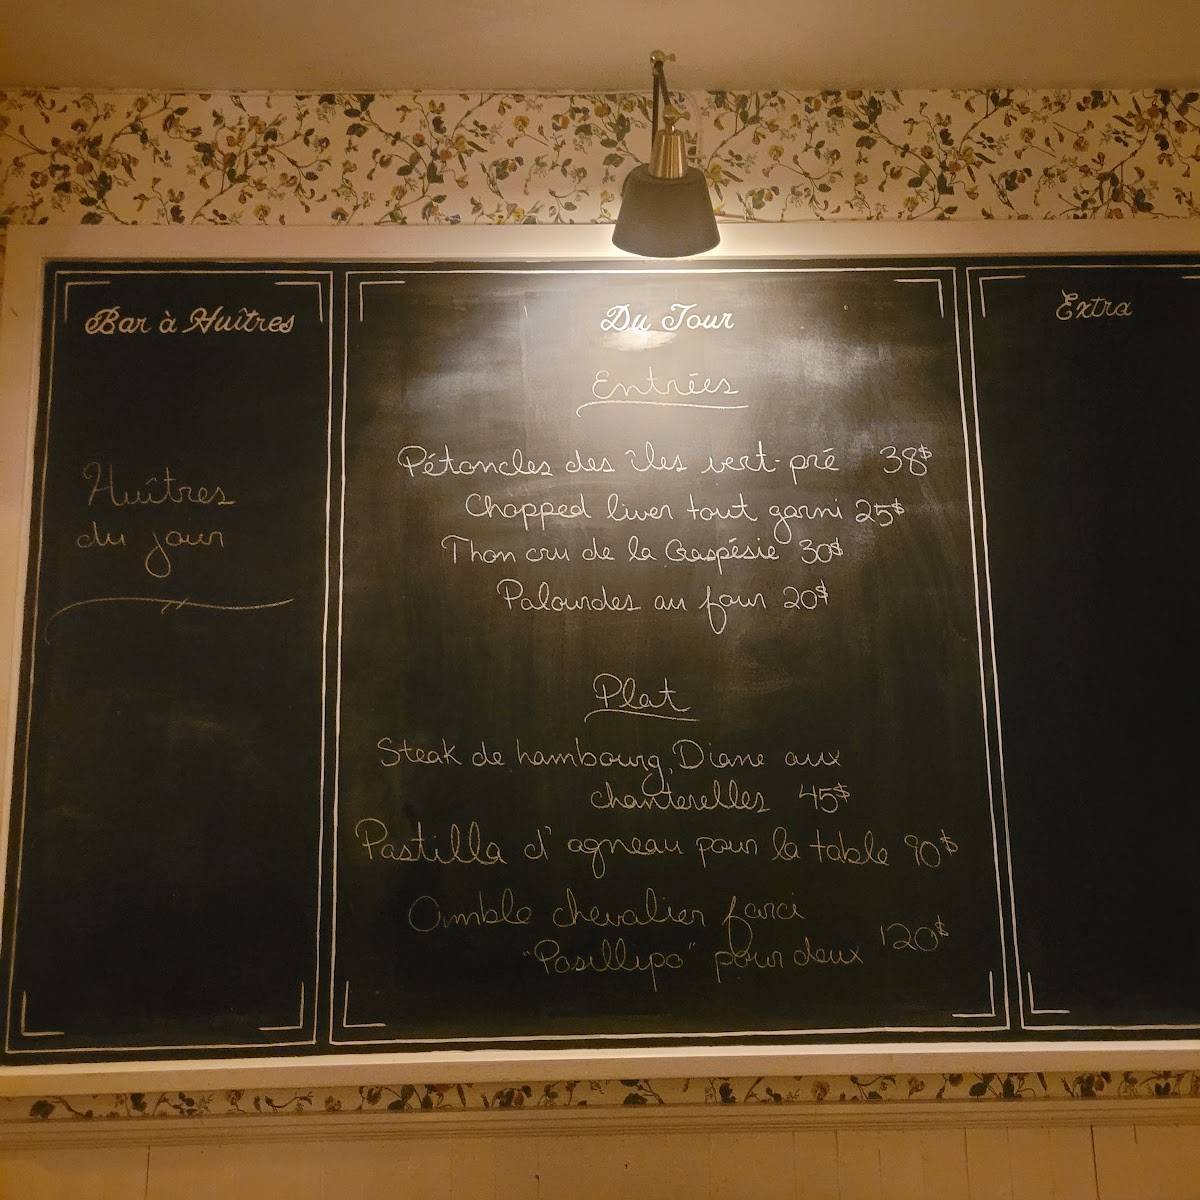 Bar à Huîtres
Huîtres
du jour
Du Jour
Entrées
Pétoncles des îles vert-pré 38$
Chopped liver tout garni 25$
Thon cru de la Gaspésie 30$
Palourdes au four 20$
Plat
Steak de hambourg, Diane aux
chanterelles 45$
Pastilla d'agneau pour la table 90$
Omble chevalier farci
"Posillipo" pour deux 120$
Extra